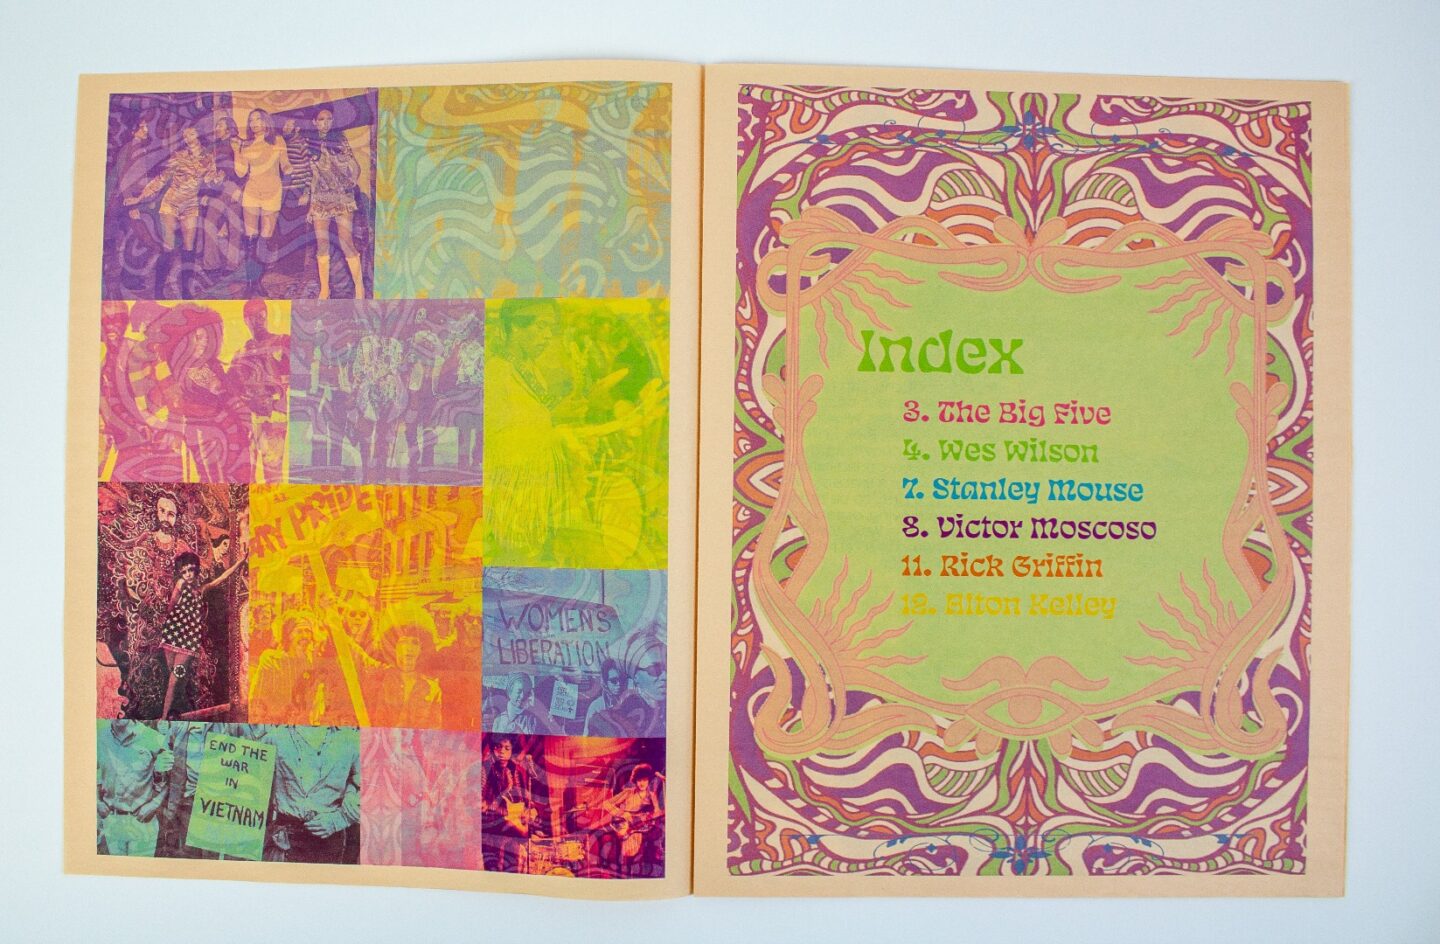 AY PRIDE
WOMEN'S
LIBERATION
END THE
WAR
IN
VIETNAM
Index
3. The Big Five
4. Wes Wilson
7. Stanley Mouse
8. Victor Moscoso
11. Rick Griffin
12. Alton Kelley